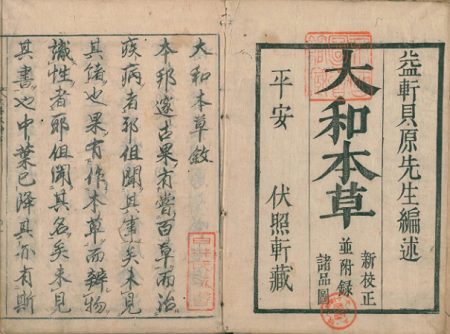 益軒貝原先生編述
大和本草
新校正
並附録
諸品圖
平安 伏照軒藏
大和本草敘
本邦邃古果有嘗百草而治
疾病者邪但聞其事矣未見
其人也果有作本草而辨物
識性者耶但聞其名矣未見
其書也中葉已降其亦有斯